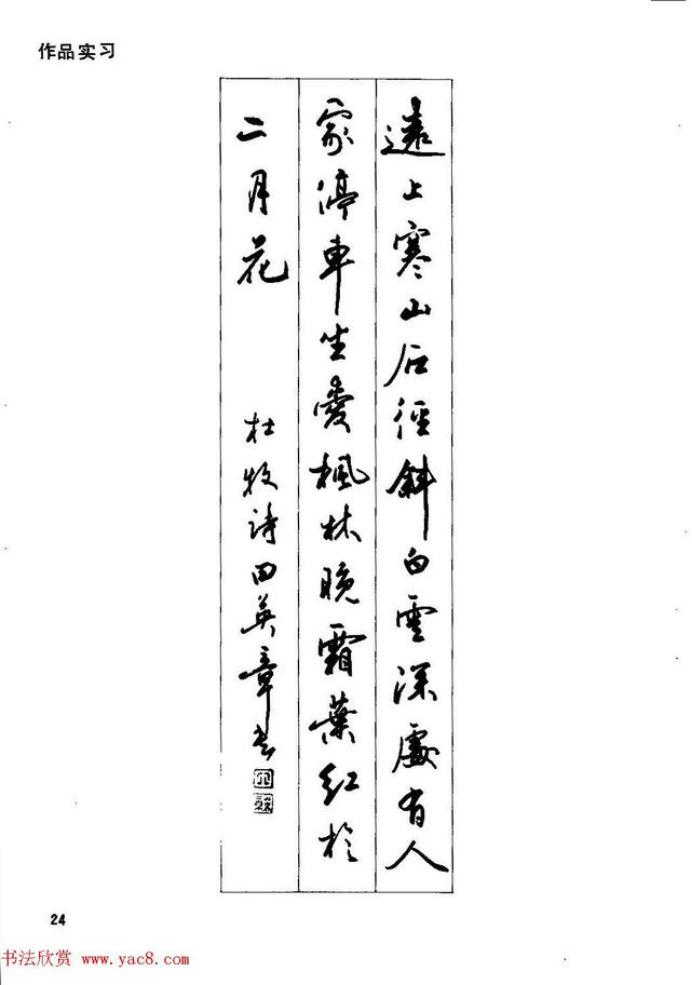 作品实习
遠上寒山石徑斜白雲深處有人
家停車坐愛楓林晚霜葉紅於
二月花
杜牧詩田英章书
24
书法欣赏 www.yac8.com